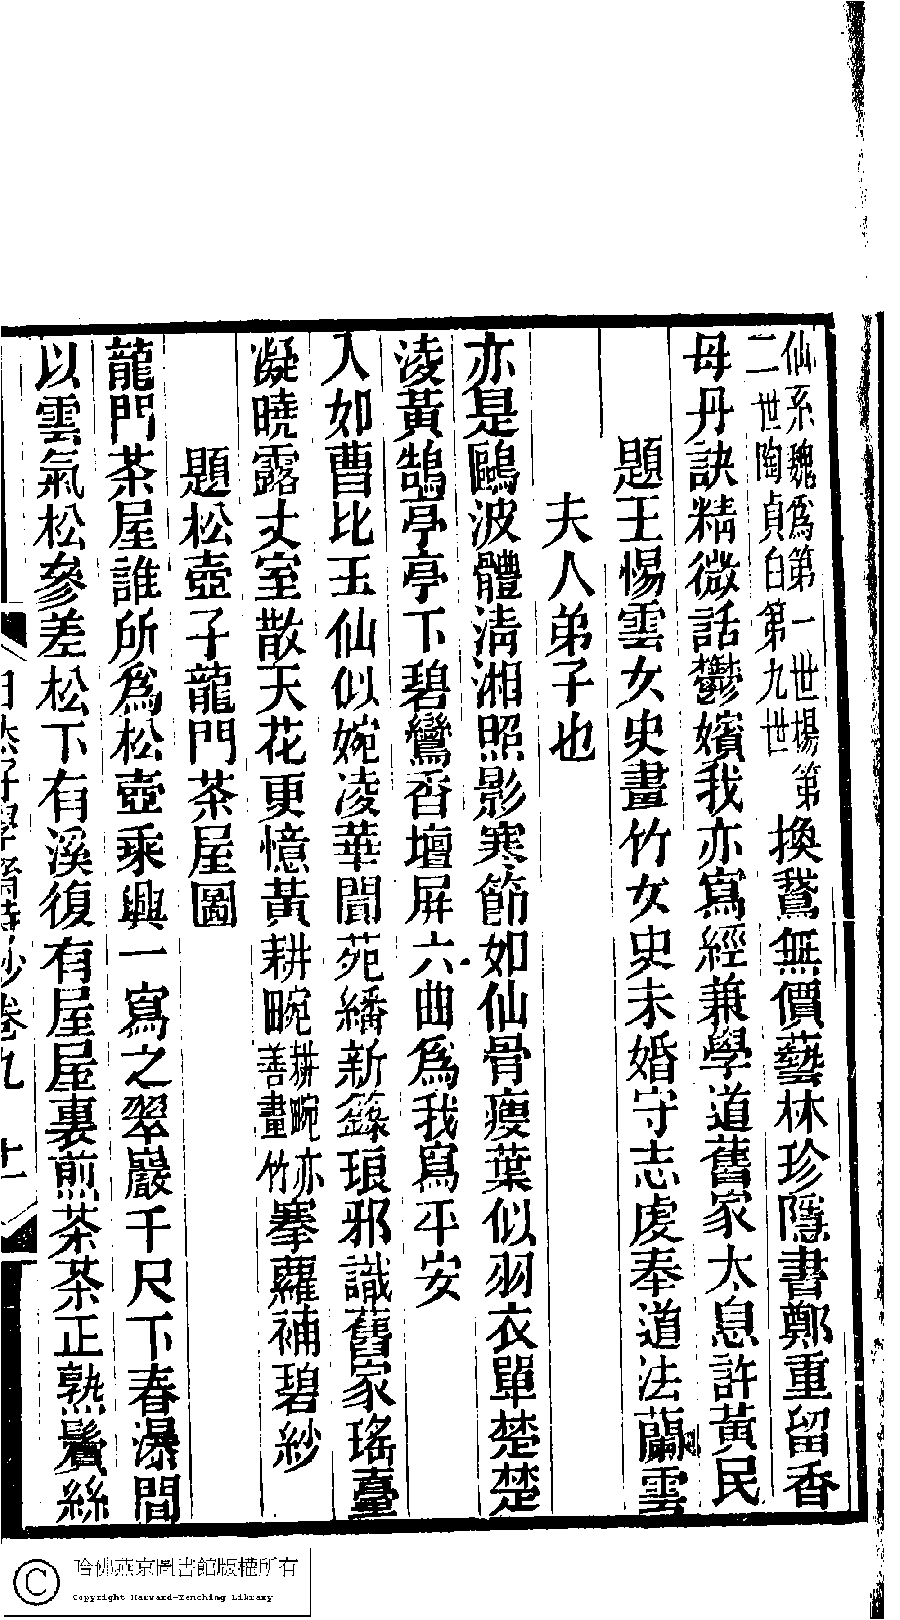 仙系魏爲第一世楊第
二世陶貞白第九世
換鵞無價藝林珍隱書鄭重留香
母丹訣精微話鬱嬪我亦寫經兼學道舊家太息許黃民
題王惕雲女史畫竹女史未婚守志虔奉道法蘭雲
夫人弟子也
亦是鷗波體淸湘照影寒節如仙骨瘦葉似羽衣單楚楚
淩黃鵠亭亭下碧鸞香壇屏六曲爲我寫平安
人如曹比玉仙似婉凌華閬苑繙新籙琅邪識舊家瑤臺
凝曉露丈室散天花更憶黃耕畹
耕畹亦
善畫竹
搴蘿補碧紗
題松壺子龍門茶屋圖
龍門茶屋誰所爲松壺乘興一寫之翠巖千尺下春瀑間
以雲氣松參差松下有溪復有屋屋裏煎茶茶正熟鬢絲
卷九
十一
哈佛燕京圖書館版權所有
Copyright Harvard-Yenching Library